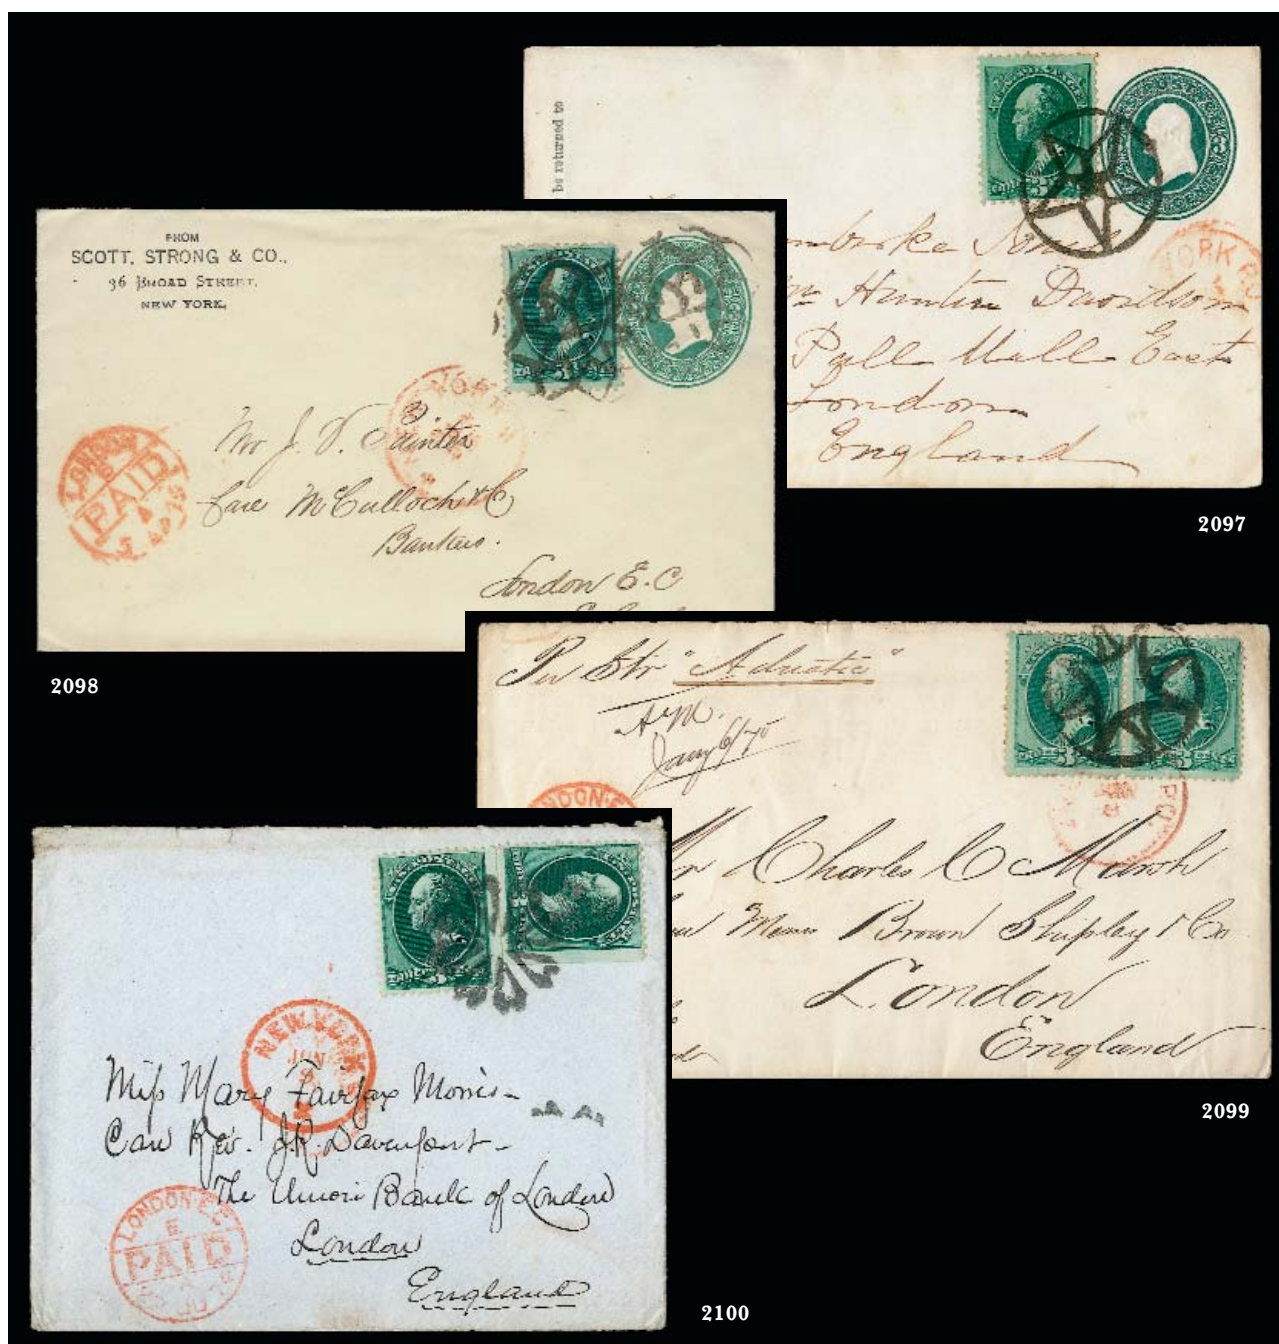 be returned to
Hunter Davidson
Pall Mall East
London
England
YORK
2097
FROM
SCOTT, STRONG & CO.,
36 BROAD STREET,
NEW YORK.
YORK
LONDON
PAID
Mr J. V. Painter
Care McCulloch & Co
Bankers.
London E.C
2098
Per Str "Adriatic"
A.M.
Jany 6/75
LONDON E
Charles C Marsh
Brown Shipley & Co
London
England
2099
NEW YORK
JUN
Miss Mary Fairfax Morris
Care Rev. J.R. Davenport
The Union Bank of London
London
England
LONDON E.C
E
PAID
2100